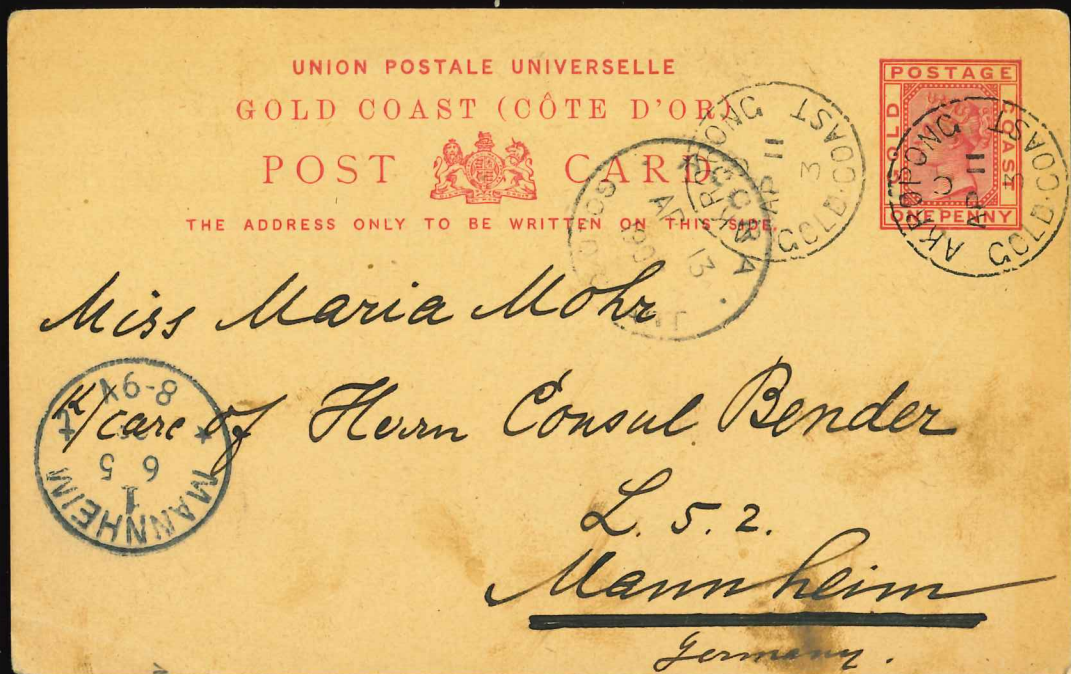 UNION POSTALE UNIVERSELLE
GOLD COAST (CÔTE D'OR)
POST CARD
THE ADDRESS ONLY TO BE WRITTEN ON THIS SIDE.
POSTAGE
GOLD COAST
ONE PENNY
AKROPONG
AP 11
3
GOLD·COAST
AKROPONG
AP 11
3
GOLD·COAST
ACCRA
AP 13
Miss Maria Mohr
care of Herrn Consul Bender
L. 5. 2.
Mannheim
Germany.
MANNHEIM
1
6 5
8-9V